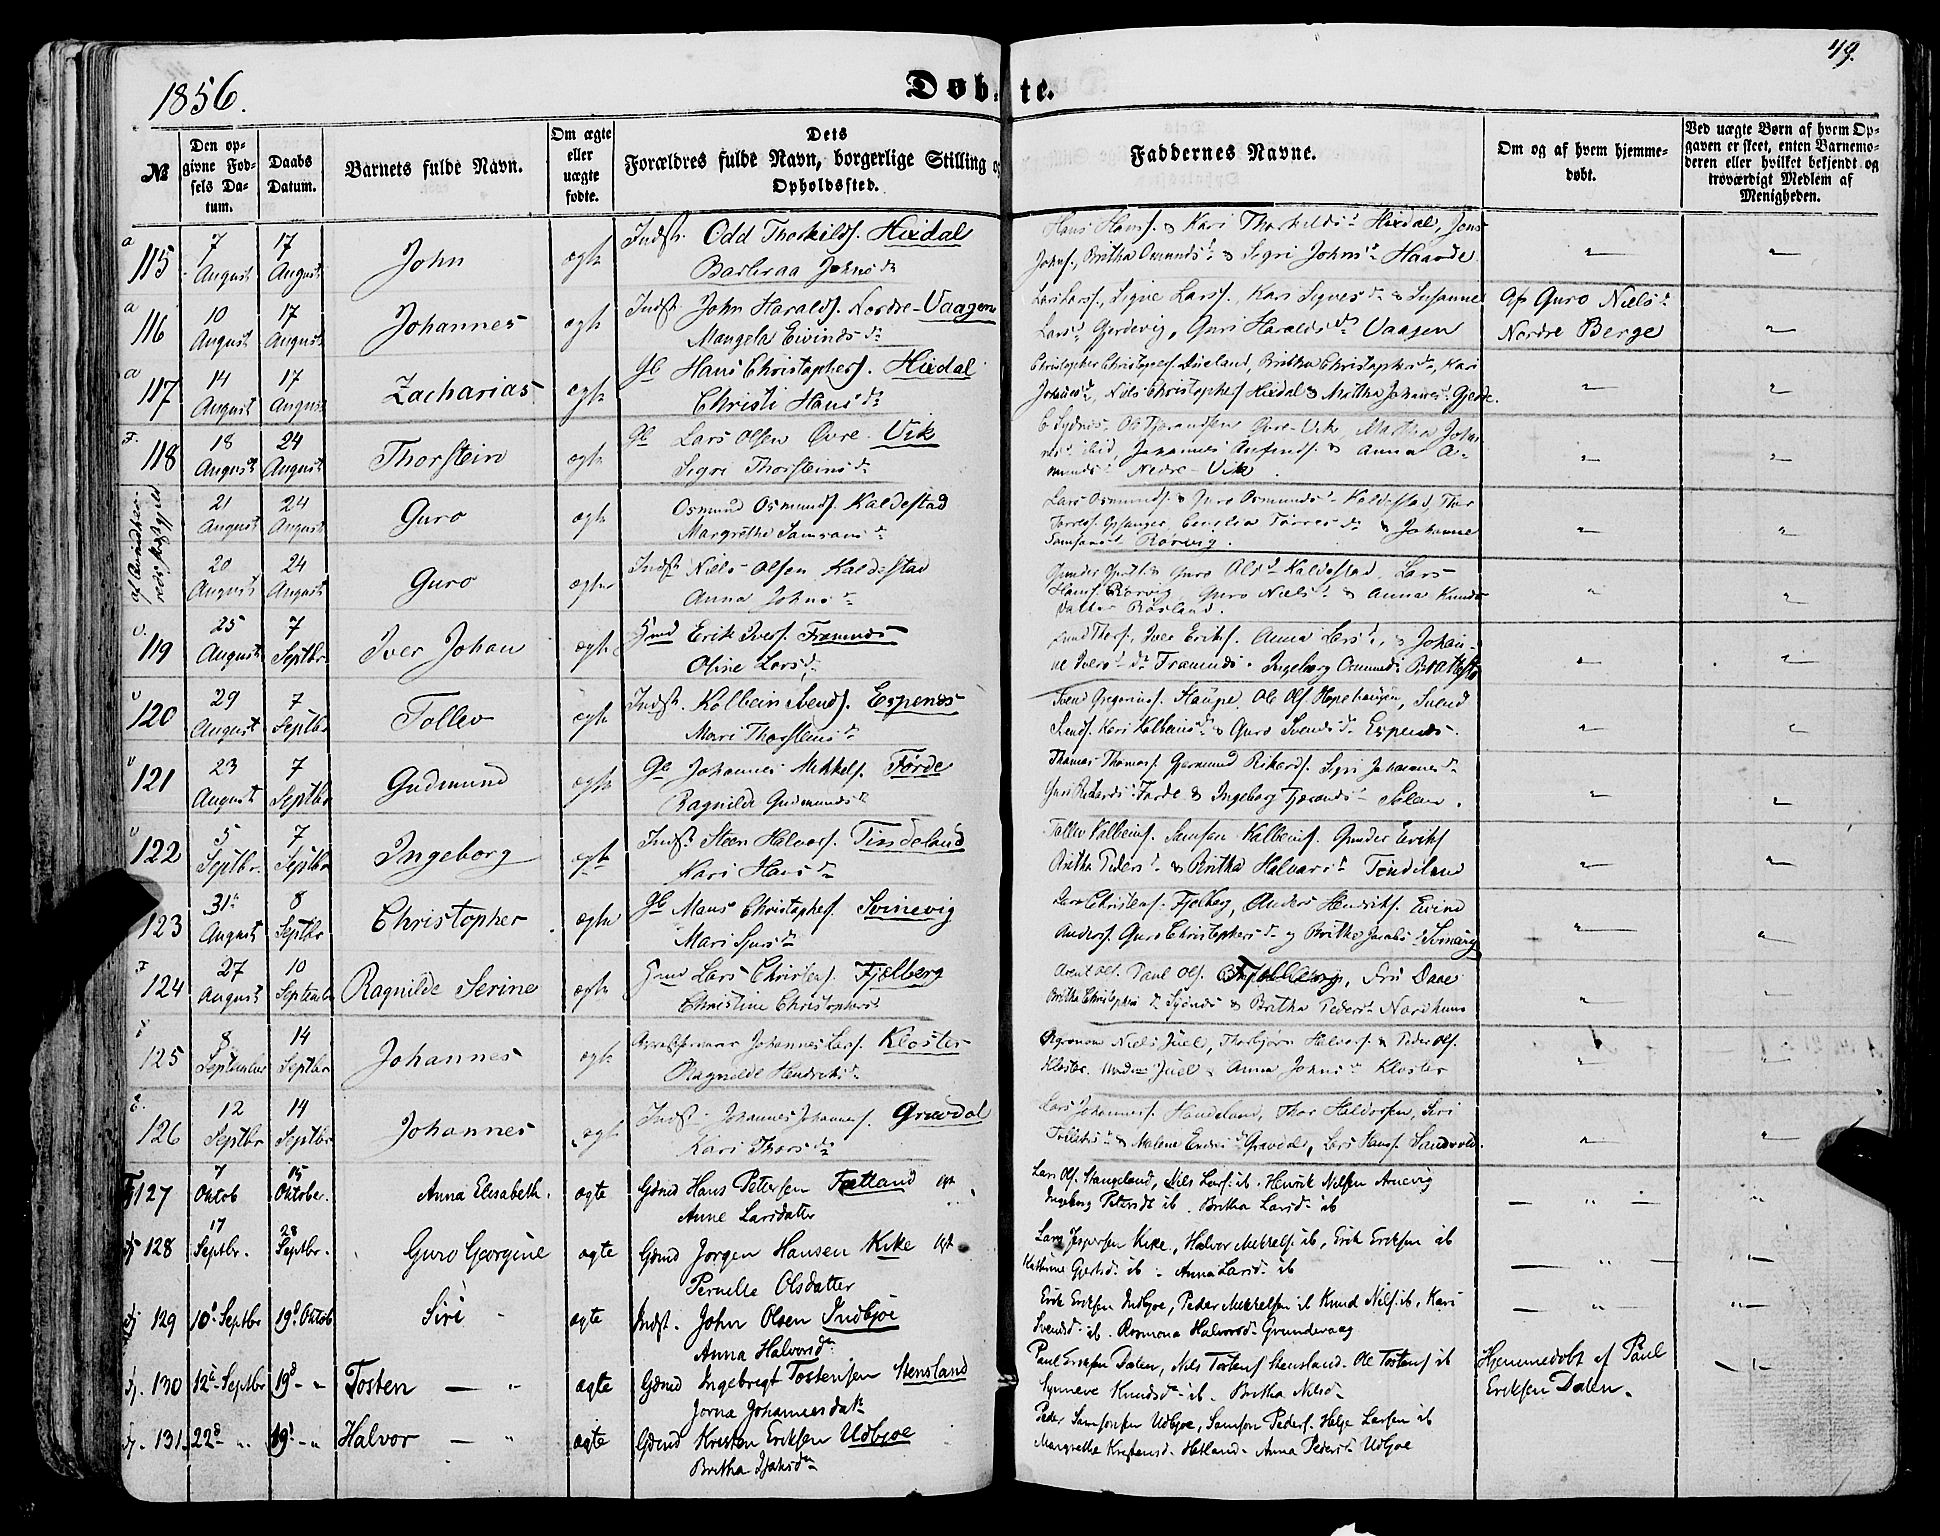 49.
1856.
Døbte.
№
Den opgivne Fødsels Datum.
Daabs Datum.
Barnets fulde Navn.
Om ægte eller uægte fødte.
Dets Forældres fulde Navn, borgerlige Stilling og Opholdssted.
Faddernes Navne.
Om og af hvem hjemmedøbt.
Ved uægte Børn af hvem Opgaven er skeet, enten Barnemoderen eller hvilket bekjendt og troværdigt Medlem af Menigheden.
a 115 7 August 17 August John ægte Indst. Odd Thorkilds. Hixdal
Barbraa Johns dr
Hans Hans. & Kari Thorkilds dr Hixdal, Jens
Johns., Britha Osmunds dr & Sigri Johns dr Haavde
a 116 10 August 17 August Johannes ægte Indst John Haralds. Nordre-Vaagen
Mangela Eivinds dr
Lars Larss., Signe Larss., Kari Signes dr & Susanne
Lars dr Gjerdevig, Guri Haralds dr Vaagen
Af Guro Niels dr
Nordre Berge
a 117 14 August 17 August Zacharias ægte Gb Hans Christophers. Hixdal
Christi Hans dr
Britha Christophers dr, Kari
Johannes dr, Niels Christophers Hixdal & Martha Johannes dr Gjerde.
F. 118 18 August 24 August Thorstein ægte Gb Lars Olsen Øvre-Vik
Sigri Thorsteins dr
Øvre-Vik, Martha Johannes
dr ibid, Johannes & Anna A-
munds dr Nedre-Vik
21 August 24 August Guro ægte Osmund Osmunds. Kaldestad
Margrethe Samsons dr
Lars Osmunds. & Guro Osmunds dr Kaldestad, Thor
Torres. Opsanger, Cecilia Torres dr & Johanne
Samsons dr Rørvig.
20 August 24 August Guro ægte Indst Niels Olsen Kaldestad
Anna Johns dr
Guro Ols dr Kaldestad, Lars
Hans. Rørvig, Guro Niels dr & Anna Knuds
datter Røsland.
U. 119 25 August 7 Septbr Iver Johan ægte Gmd Erik Ivers. Framnes
Oline Lars dr
Iver Eriks. Anna Lars dr & Johan-
ne Ivers dr Framnes. Ingeborg Osmunds dr
U 120 29 August 7 Septbr Tollev ægte Indst. Kolbein Svends. Espenes
Mari Thorsteins dr
Svend Gregorius. Staupe, Ole Ols. Hopehaugen, Svend
Svends. Kari Kolbeins dr & Guro Svends dr Espenes.
U 121 23 August 7 Septbr Gudmund ægte Gb Johannes Mikkels. Førde
Ragnilde Gudmunds dr
Thomas Thomas. Gjermund Rikards. Sigri Johannes dr
Guri Rikards dr Førde & Ingeborg
U 122 5 Septbr. 7 Septbr Ingeborg ægte Indst. Steen Halvors. Tindeland
Kari Hans dr
Tollev Kolbeins. Samson Kolbeins. Gunder Eriks
Britha Peders dr & Britha Halvors dr Tindeland
123 31te August 8 Septbr Christopher ægte Gb Mans Christophers. Svinevig
Mari Sjurs dr
Lars Christens. Fjelberg, Anders Hendriks. Eivind
Anders. Guro Christophers dr og Britha Jacobs dr Svinevig
F 124 27 August 10 Septembr Ragnilde Serine ægte Gmd Lars Christens. Fjelberg
Christine Christophers dr
Paul Ols. Fjelberg, Fru Daae
Britha Christophers dr Sydnes & Britha Peders dr Nordhuus
125 8. September 14 Septbr Johannes ægte Johannes Lars. Kloster
Ragnilde Hendriks dr
Agronom Niels Juel, Thorbjørn Halvors. & Peder Ols.
Kloster. Juel & Anna Johns dr Kloster
E. 126 12 Septbr 14 Septbr Johannes ægte Indst Johannes Johannes. Gravdal
Kari Thors dr
Lars Johannes. Handeland, Thor Haldorsen, Siri
& Malene Endres dr Gravdal, Lars Hans. Sandvold.
127 7 Oktob 15 Oktober. Anna Elisabeth. ægte Gmd Hans Petersen Fatland
Anne Larsdatter
Lars Ols. Stangeland, Nils Lars. ib. Henrik Nilsen Arnevig
Ingeborg Petersdt ib. Britha Larsd. ib
Fj 128 17 Septbr. 28 Septbr. Guro Georgine ægte Gmd Jørgen Hansen Kike
Pernille Olsdatter
Lars Jespersen Kike, Halvor Mikkels. ib, Erik Eriksen ib
Kathrine Gjertsd. ib. Anna Larsd. ib
Fj 129 10d Septbr 19d Oktob Siri ægte Indst. John Olsen Indbjoe
Anna Halvorsdr.
Erik Eriksen Indbjoe, Peder Mikkelsen ib Knud Nils. ib, Kari
Svendsd. ib. Rosmona Halvorsd. Grundevaag
Fj. 130 12d Septbr 19d " Tosten ægte Gmd Ingebrigt Tostensen Stensland
Jorna Johannesdatr.
Paul Eriksen Dalen, Nils Tostens. Stensland. Ole Tostens. ib
Synneve Knudsd. ib. Britha Nilsd.
Hjemmedøbt af Paul
Eriksen Dalen.
Fj. 131. 22d " 19d " Halvor ægte Gmd Kresten Eriksen Udbjoe
Britha
Peder Samsonsen Udbjoe, Samson Peders. Helge Larsen ib
Margrethe Krestensd. Hetland. Anna Pedersd. Udbjoe